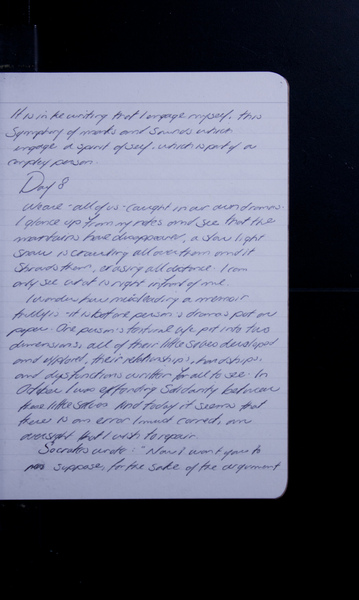 It is in the writing that I engage myself. this
Symphony of marks and sounds which
engage a spirit of self. which is part of a
person.
Day 8
We are - all of us - caught in our own dramas.
I glance up from my notes and see that the
mountains have disappeared, a slow light
snow is crawling all over them and it
shrouds them, erasing all distance. I can
only see what is right infront of me.
I wonder how misleading a memoir
truly is - it is but one person's drama put on
paper. One person's life put into two
dimensions, all of their little selves developed
and explored, their relationships, hardships,
and dysfunctions written for all to see. In
October I was solidarity between
these little selves And today it seems that
there is an error I must correct, an
oversight that I wish to repair.
Socrates wrote: "Now I want you to
suppose, for the sake of the argument